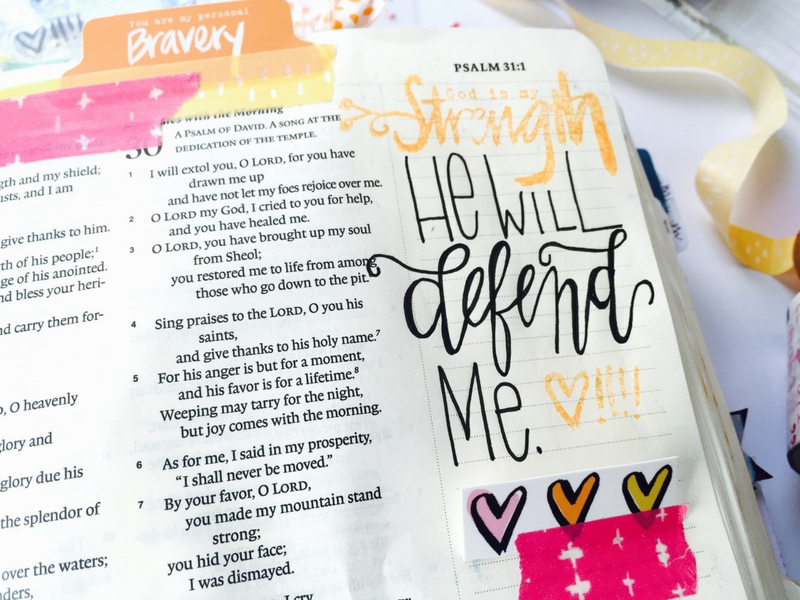 You are my personal
Bravery
PSALM 31:1
God is my
Strength
He will
defend
Me.
!!!!
gth and my shield;
usts, and I am
give thanks to him.
rth of his people;¹
ge of his anointed.
nd bless your heri-
nd carry them for-
o, O heavenly
glory and
glory due his
the splendor of
over the waters;
nders,
with the Morning
30 A PSALM OF DAVID. A SONG AT THE
DEDICATION OF THE TEMPLE.
1 I will extol you, O LORD, for you have
drawn me up
and have not let my foes rejoice over me.
2 O LORD my God, I cried to you for help,
and you have healed me.
3 O LORD, you have brought up my soul
from Sheol;
you restored me to life from among
those who go down to the pit.
4 Sing praises to the LORD, O you his
saints,
and give thanks to his holy name.⁷
5 For his anger is but for a moment,
and his favor is for a lifetime.⁸
Weeping may tarry for the night,
but joy comes with the morning.
6 As for me, I said in my prosperity,
"I shall never be moved."
7 By your favor, O LORD,
you made my mountain stand
strong;
you hid your face;
I was dismayed.
I cry